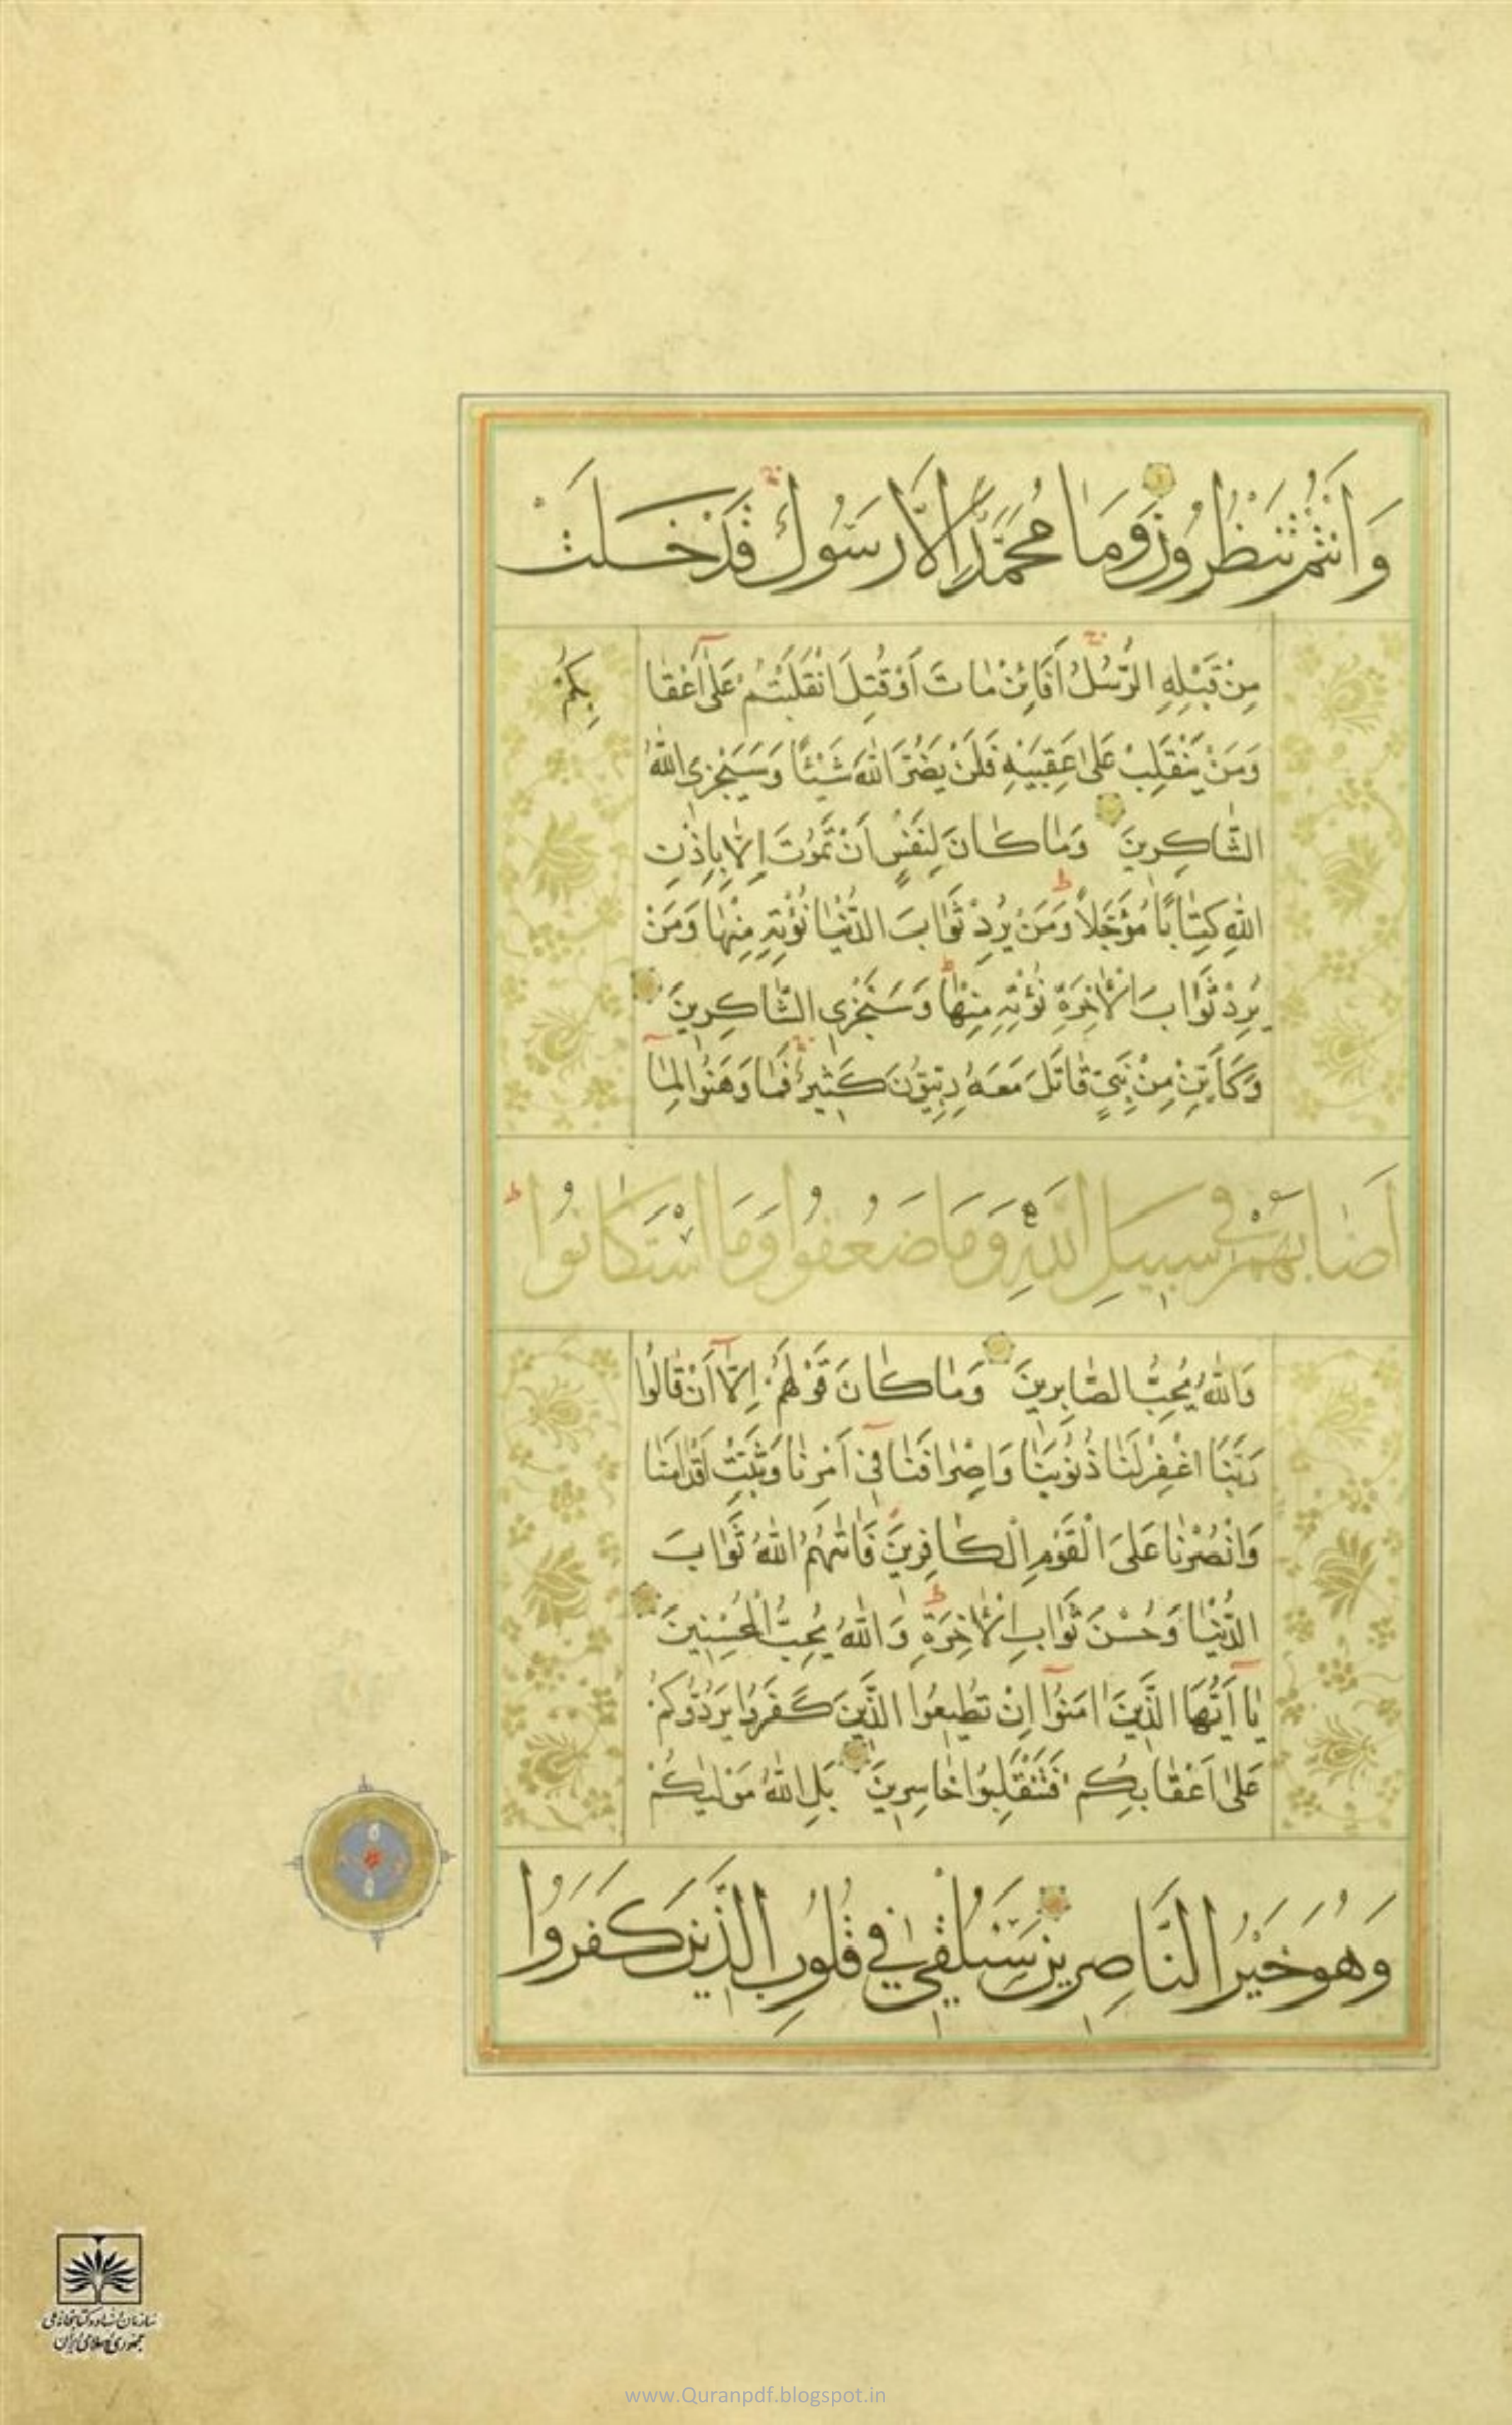 وَاَنْتُمْ تَنْظُرُونَ وَمَا مُحَمَّدٌ اِلَّا رَسُولٌ قَدْ خَلَتْ
مِنْ قَبْلِهِ الرُّسُلُ اَفَائِنْ مٰاتَ اَوْ قُتِلَ انْقَلَبْتُمْ عَلٰٓى اَعْقٰا
بِكُمْ
وَمَنْ يَنْقَلِبْ عَلىٰ عَقِبَيْهِ فَلَنْ يَضُرَّ اللّٰهَ شَيْئًا وَسَيَجْزِى اللّٰهُ
الشّٰاكِرِينَ وَمٰا كٰانَ لِنَفْسٍ اَنْ تَمُوتَ اِلّٰا بِاِذْنِ
اللّٰهِ كِتٰابًا مُؤَجَّلًا وَمَنْ يُرِدْ ثَوٰابَ الدُّنْيٰا نُؤْتِهِ مِنْهٰا وَمَنْ
يُرِدْ ثَوٰابَ الْاٰخِرَةِ نُؤْتِهِ مِنْهٰا وَسَنَجْزِى الشّٰاكِرِينَ
وَكَاَيِّنْ مِنْ نَبِيٍّ قٰاتَلَ مَعَهُ رِبِّيُّونَ كَثِيرٌ فَمٰا وَهَنُوا لِمٰٓا
اَصٰابَهُمْ فِي سَبِيلِ اللّٰهِ وَمَا ضَعُفُوا وَمَا اسْتَكٰانُوا
وَاللّٰهُ يُحِبُّ الصّٰابِرِينَ وَمٰا كٰانَ قَوْلَهُمْ اِلّٰٓا اَنْ قٰالُوا
رَبَّنَا اغْفِرْ لَنٰا ذُنُوبَنٰا وَاِسْرٰافَنٰا فِىٓ اَمْرِنٰا وَثَبِّتْ اَقْدٰامَنٰا
وَانْصُرْنٰا عَلَى الْقَوْمِ الْكٰافِرِينَ فَاٰتٰيهُمُ اللّٰهُ ثَوٰابَ
الدُّنْيٰا وَحُسْنَ ثَوٰابِ الْاٰخِرَةِ وَاللّٰهُ يُحِبُّ الْمُحْسِنِينَ
يٰٓا اَيُّهَا الَّذِينَ اٰمَنُوٓا اِنْ تُطِيعُوا الَّذِينَ كَفَرُوا يَرُدُّوكُمْ
عَلىٰ اَعْقٰابِكُمْ فَتَنْقَلِبُوا خٰاسِرِينَ بَلِ اللّٰهُ مَوْلٰيكُمْ
وَهُوَ خَيْرُ النَّاصِرِينَ سَنُلْقِى فِي قُلُوبِ الَّذِينَ كَفَرُوا
سازمان اسناد و کتابخانه ملی
جمهوری اسلامی ایران
www.Quranpdf.blogspot.in